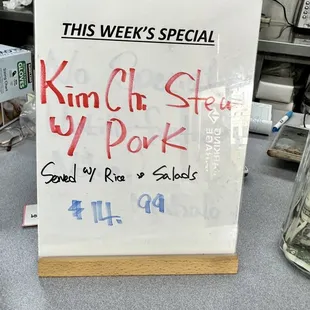 THIS WEEK'S SPECIAL
Kim Ch. Stew
w/ Pork
Served w/ Rice & Salads
$14.99
GLOVES